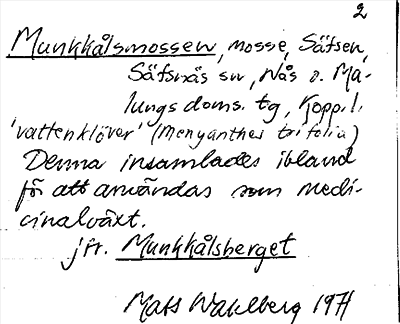 2
Munkkålsmossen, mosse, Säfsen,
Säfsnäs sn, Nås o. Ma-
lungs doms. tg, Kopp.l.
'vattenklöver' (Menyanthes trifolia)
Denna insamlades ibland
för att användas som medi-
cinalväxt.
jfr. Munkkålsberget
Mats Wahlberg 1971